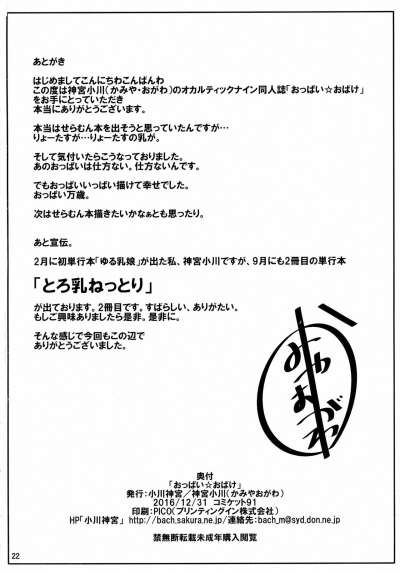 あとがき
はじめましてこんにちわこんばんわ
この度は神宮小川(かみや・おがわ)のオカルティックナイン同人誌「おっぱい☆おばけ」
をお手にとっていただき
本当にありがとうございます。
本当はせらむん本を出そうと思っていたんですが…
りょーたすが…りょーたすの乳が。
そして気付いたらこうなっておりました。
あのおっぱいは仕方ない。仕方ないんです。
でもおっぱいいっぱい描けて幸せでした。
おっぱい万歳。
次はせらむん本描きたいかなぁとも思ったり。
あと宣伝。
2月に初単行本「ゆる乳娘」が出た私、神宮小川ですが、9月にも2冊目の単行本
「とろ乳ねっとり」
が出ております。2冊目です。すばらしい、ありがたい。
もしご興味ありましたら是非。是非に。
そんな感じで今回もこの辺で
ありがとうございました。
奥付
「おっぱい☆おばけ」
発行:小川神宮/神宮小川(かみやおがわ)
2016/12/31 コミケット91
印刷:PICO(プリンティングイン株式会社)
HP「小川神宮」 http://bach.sakura.ne.jp/連絡先:bach_m@syd.don.ne.jp
禁無断転載未成年購入閲覧
22